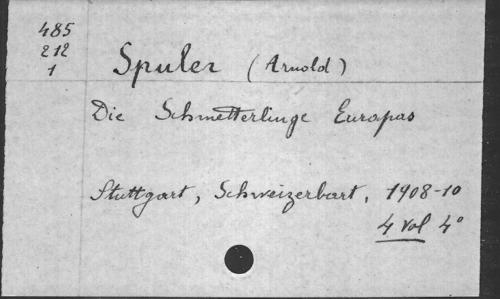 485
212
1
Spuler (Arnold)
Die Schmetterlinge Europas
Stuttgart, Schweizerbart, 1908-10
4 Vol 4°